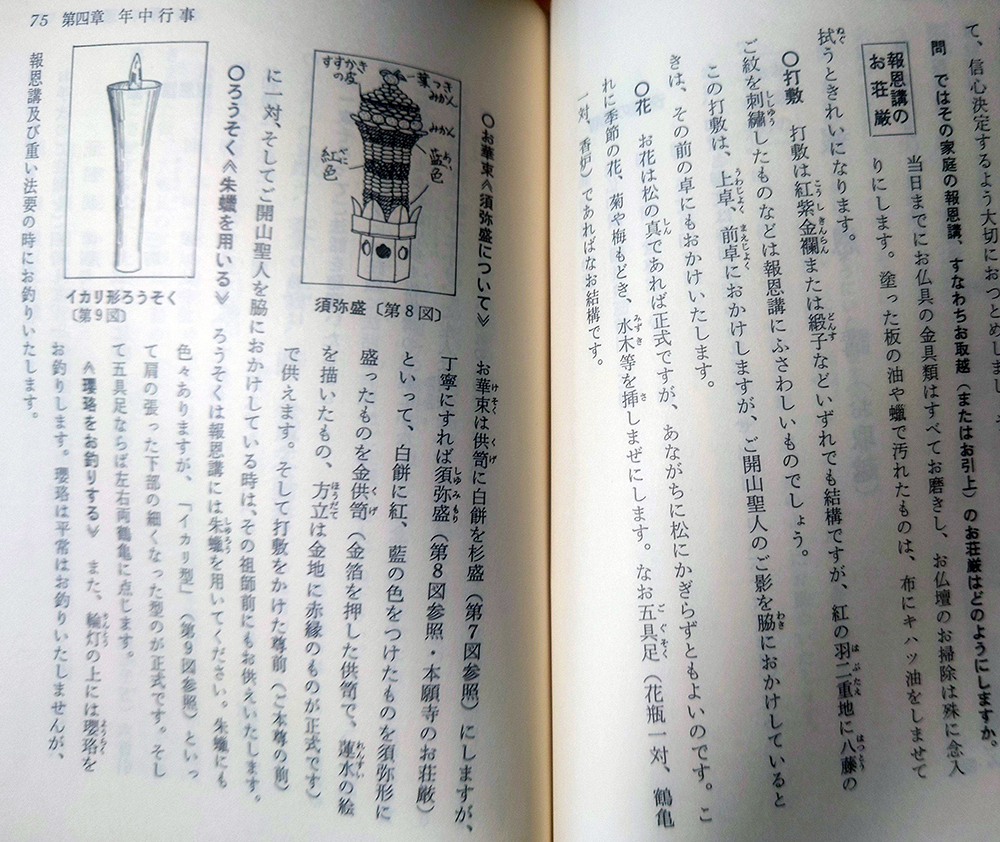 て、信心決定するよう大切におつとめしまし
問　ではその家庭の報恩講、すなわちお取越（またはお引上）のお荘厳はどのようにしますか。
報恩講の
お荘厳
当日までにお仏具の金具類はすべてお磨きし、お仏壇のお掃除は殊に念入
りにします。塗った板の油や蠟で汚れたものは、布にキハツ油をしませて
拭うときれいになります。
〇打敷　打敷は紅紫金襴または緞子などいずれでも結構ですが、紅の羽二重地に八藤の
ご紋を刺繡したものなどは報恩講にふさわしいものでしょう。
この打敷は、上卓、前卓におかけしますが、ご開山聖人のご影を脇におかけしていると
きは、その前の卓にもおかけいたします。
〇花　お花は松の真であれば正式ですが、あながちに松にかぎらずともよいのです。こ
れに季節の花、菊や梅もどき、水木等を挿しまぜにします。なお五具足（花瓶一対、鶴亀
一対、香炉）であればなお結構です。
75　第四章　年中行事
〇お華束≪須弥盛について≫
お華束は供笥に白餅を杉盛（第7図参照）にしますが、
丁寧にすれば須弥盛（第8図参照・本願寺のお荘厳）
といって、白餅に紅、藍の色をつけたものを須弥形に
盛ったものを金供笥（金箔を押した供笥で、蓮水の絵
を描いたもの、方立は金地に赤縁のものが正式です）
で供えます。そして打敷をかけた尊前（ご本尊の前）
に一対、そしてご開山聖人を脇におかけしている時は、その祖師前にもお供えいたします。
一葉つき
みかん
みかん
藍色
紅色
すすかき
の皮
須弥盛〔第8図〕
〇ろうそく≪朱蠟を用いる≫　ろうそくは報恩講には朱蠟を用いてください。朱蠟にも
色々ありますが、「イカリ型」（第9図参照）といっ
て肩の張った下部の細くなった型のが正式です。そし
て五具足ならば左右両鶴亀に点じます。
イカリ形ろうそく
〔第9図〕
≪瓔珞をお釣りする≫　また、輪灯の上には瓔珞を
お釣りします。瓔珞は平常はお釣りいたしませんが、
報恩講及び重い法要の時にお釣りいたします。